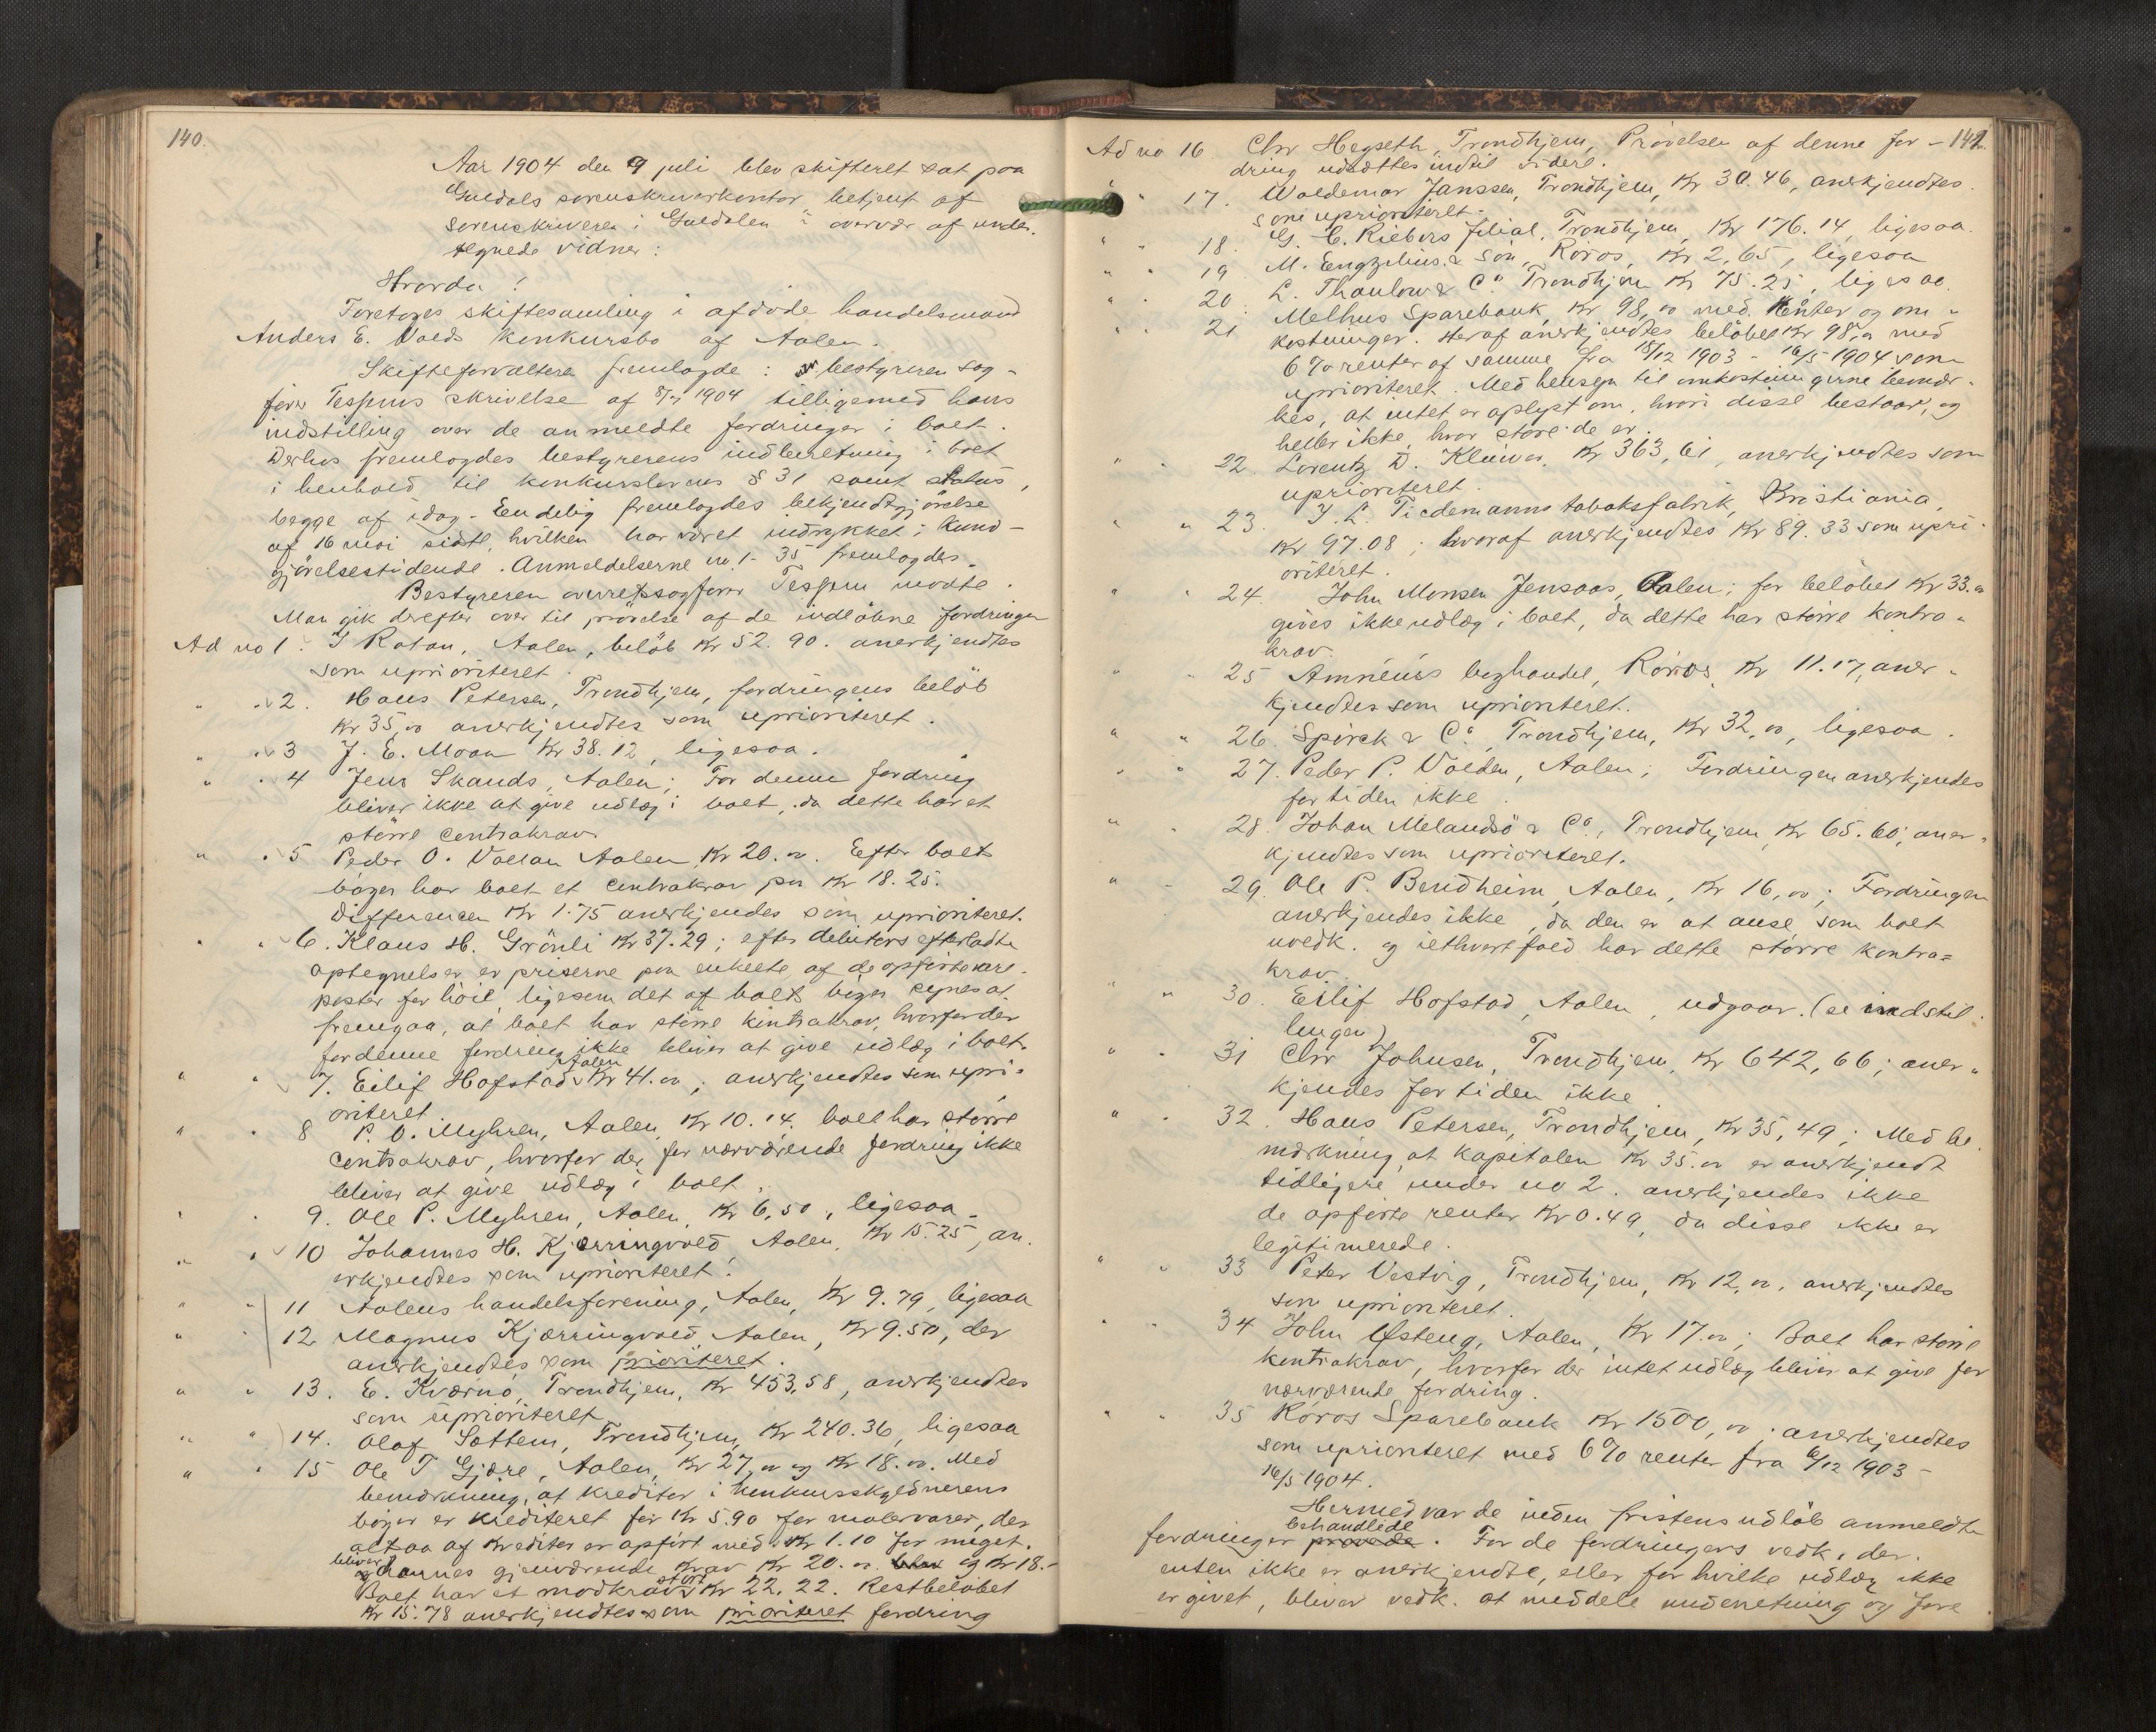 140.
Aar 1904 den 9 juli blev skifteret sat paa
Guldals sorenskriverkontor betjent af
sorenskriveren i Guldalen i overvær af under-
tegnede vidner:
Hvorda!
Foretoges skiftesamling i afdöde handelsmand
Anders E. Volds konkursbo af Aalen.
Skifteforvalteren fremlagde: bestyreren sag-
förer Tessems skrivelse af 8/7 1904 tilligemed hans
indstilling over de anmeldte fordringer i boet.
Derhos fremlagdes bestyrerens indberetning i boet
i henhold til konkurslovens § 31 samt status,
begge af idag. Endelig fremlagdes bekjendtgjörelse
af 16 mai sidstl. hvilken har været indrykket i Kund-
gjörelsestidende. Anmeldelserne no. 1 - 35 fremlagdes.
Bestyreren overretssagförer Tessem mödte.
Man gik derefter over til prövelse af de indlöbne fordringer
Ad no 1. I Ratan, Aalen, belöb Kr 52.90. anerkjendtes
som uprioriteret.
" " 2. Hans Petersen, Trondhjem, fordringens belöb
Kr 35,00 anerkjendtes som uprioriteret.
" " 3 J. E. Moan Kr 38.12, ligesaa.
" " 4 Jens Skands, Aalen; For denne fordring
bliver ikke at give udlæg i boet, da dette har et
större contrakrav
" " 5 Peder O. Vollan Aalen Kr 20.00. Efter boets
böger har boet et contrakrav paa Kr 18.25.
Differencen Kr 1.75 anerkjendes som uprioriteret.
" " 6. Klaus H. Grönli Kr 37.29; efter debitors efterladte
optegnelser er priserne paa enkelte af de opförte vare-
poster for höie ligesom det af boets böger synes at
fremgaa, at boet har större kontrakrav, hvorfor der
for denne fordring ikke bliver at give udlæg i boet.
" " 7. Eilif Hofstad, Aalen Kr 41.00; anerkjendtes som upri-
oriteret.
" " 8 P. O. Myhren, Aalen, Kr 10.14. boet har större
contrakrav, hvorfor der for nærværende fordring ikke
bliver at give udlæg i boet.
" " 9. Ole P. Myhren, Aalen, Kr 6,50, ligesaa.
" " 10 Johannes H. Kjærringvold, Aalen, Kr 15.25, an-
erkjendtes som uprioriteret.
" " 11 Aalens handelsforening, Aalen, Kr 9.79, ligesaa
" " 12 Magnus Kjærringvold Aalen, Kr 9.50, der
anerkjendtes som prioriteret.
" " 13. E. Kværnö, Trondhjem, Kr 453,58, anerkjendtes
som uprioriteret
" " 14. Olaf Sottem, Trondhjem, Kr 240.36, ligesaa
" " 15 Ole T Gjære, Aalen, Kr 27,00 og Kr 18.00. Med
bemærkning, at kreditor i konkursskyldnerens
böger er krediteret for Kr 5.90 for malervarer, der
altsaa af Kreditor er opfört med Kr 1.10 for meget.
bliver hannes gjenværende Krav Kr 20.00 og Kr 18.-
Boet har et modkrav stort Kr 22.22. Restbelöbet
Kr 15.78 anerkjendtes som prioriteret fordring
141.
Ad no 16 Chr Hegseth, Trondhjem, Prövelsen af denne for-
dring udsættes indtil videre.
" " 17. Waldemar Janssen, Trondhjem, Kr 30.46, anerkjendtes
som uprioriteret.
" " 18. G. C. Riebers filial, Trondhjem, Kr 176.14, ligesaa.
" " 19 M. Engzelius & Sön, Röros, Kr 2,65, ligesaa
" " 20. L. Thaulow & Co Trondhjem Kr 75.25, ligesaa.
" " 21 Melhus Sparebank, Kr 98,00 med renter og om-
kostninger. Heraf anerkjendtes belöbet Kr 98,00 med
6 % renter af samme fra 18/12 1903 - 16/5 1904 som
uprioriteret. Med hensyn til omkostningerne bemær-
kes, at intet er oplyst om, hvori disse bestaar, og
heller ikke, hvor store de er.
" " 22. Lorentz D. Klüwer, Kr 363,61, anerkjendtes som
uprioriteret.
" " 23. J. L. Tiedemanns tobaksfabrik, Kristiania,
Kr 97.08; hvoraf anerkjendtes Kr 89.33 som upri-
oriteret.
" " 24. John Monsen Jensaas, Aalen; for belöbet Kr 33.00
gives ikke udlæg i boet, da dette har större kontra-
krav.
" " 25 Amnéus boghandel, Röros, Kr 11.17, aner-
kjendtes som uprioriteret.
" " 26. Spörck & Co, Trondhjem, Kr 32,00, ligesaa.
" " 27. Peder P. Volden, Aalen; Fordringen anerkjendes
for tiden ikke.
" " 28. Johan Melandsö & Co, Trondhjem, Kr 65.60; aner-
kjendtes som uprioriteret.
" " 29. Ole P. Bendheim, Aalen, Kr 16,00; Fordringen
anerkjendes ikke, da den er at anse som boet
uvedk. og iethvertfald har dette större kontra-
krav.
" " 30. Eilif Hofstad, Aalen, udgaar. (se indstil-
lingen)
" " 31 Chr Johnsen, Trondhjem, Kr 642,66; aner-
kjendes for tiden ikke
" " 32. Hans Petersen, Trondhjem, Kr 35,49; Med be-
mærkning, at kapitalen Kr 35.00 er anerkjendt
tidligere under no 2. anerkjendes ikke
de opförte renter Kr 0.49, da disse ikke er
legitimerede.
" " 33 Peter Vestvig, Trondhjem, Kr 12,00, anerkjendtes
som uprioriteret.
" " 34 John Østeng, Aalen, Kr 17.00; Boet har större
kontrakrav, hvorfor der intet udlæg bliver at give for
nærværende fordring.
" " 35 Röros Sparebank Kr 1500,00; anerkjendtes
som uprioriteret med 6 % renter fra 6/12 1903 -
16/5 1904.
Hermed var de inden fristens udlöb anmeldte
fordringer prövede behandlede. For de fordringers vedk., der
enten ikke er anerkjendte, eller for hvilke udlæg ikke
er givet, bliver vedk. at meddele underretning og fore